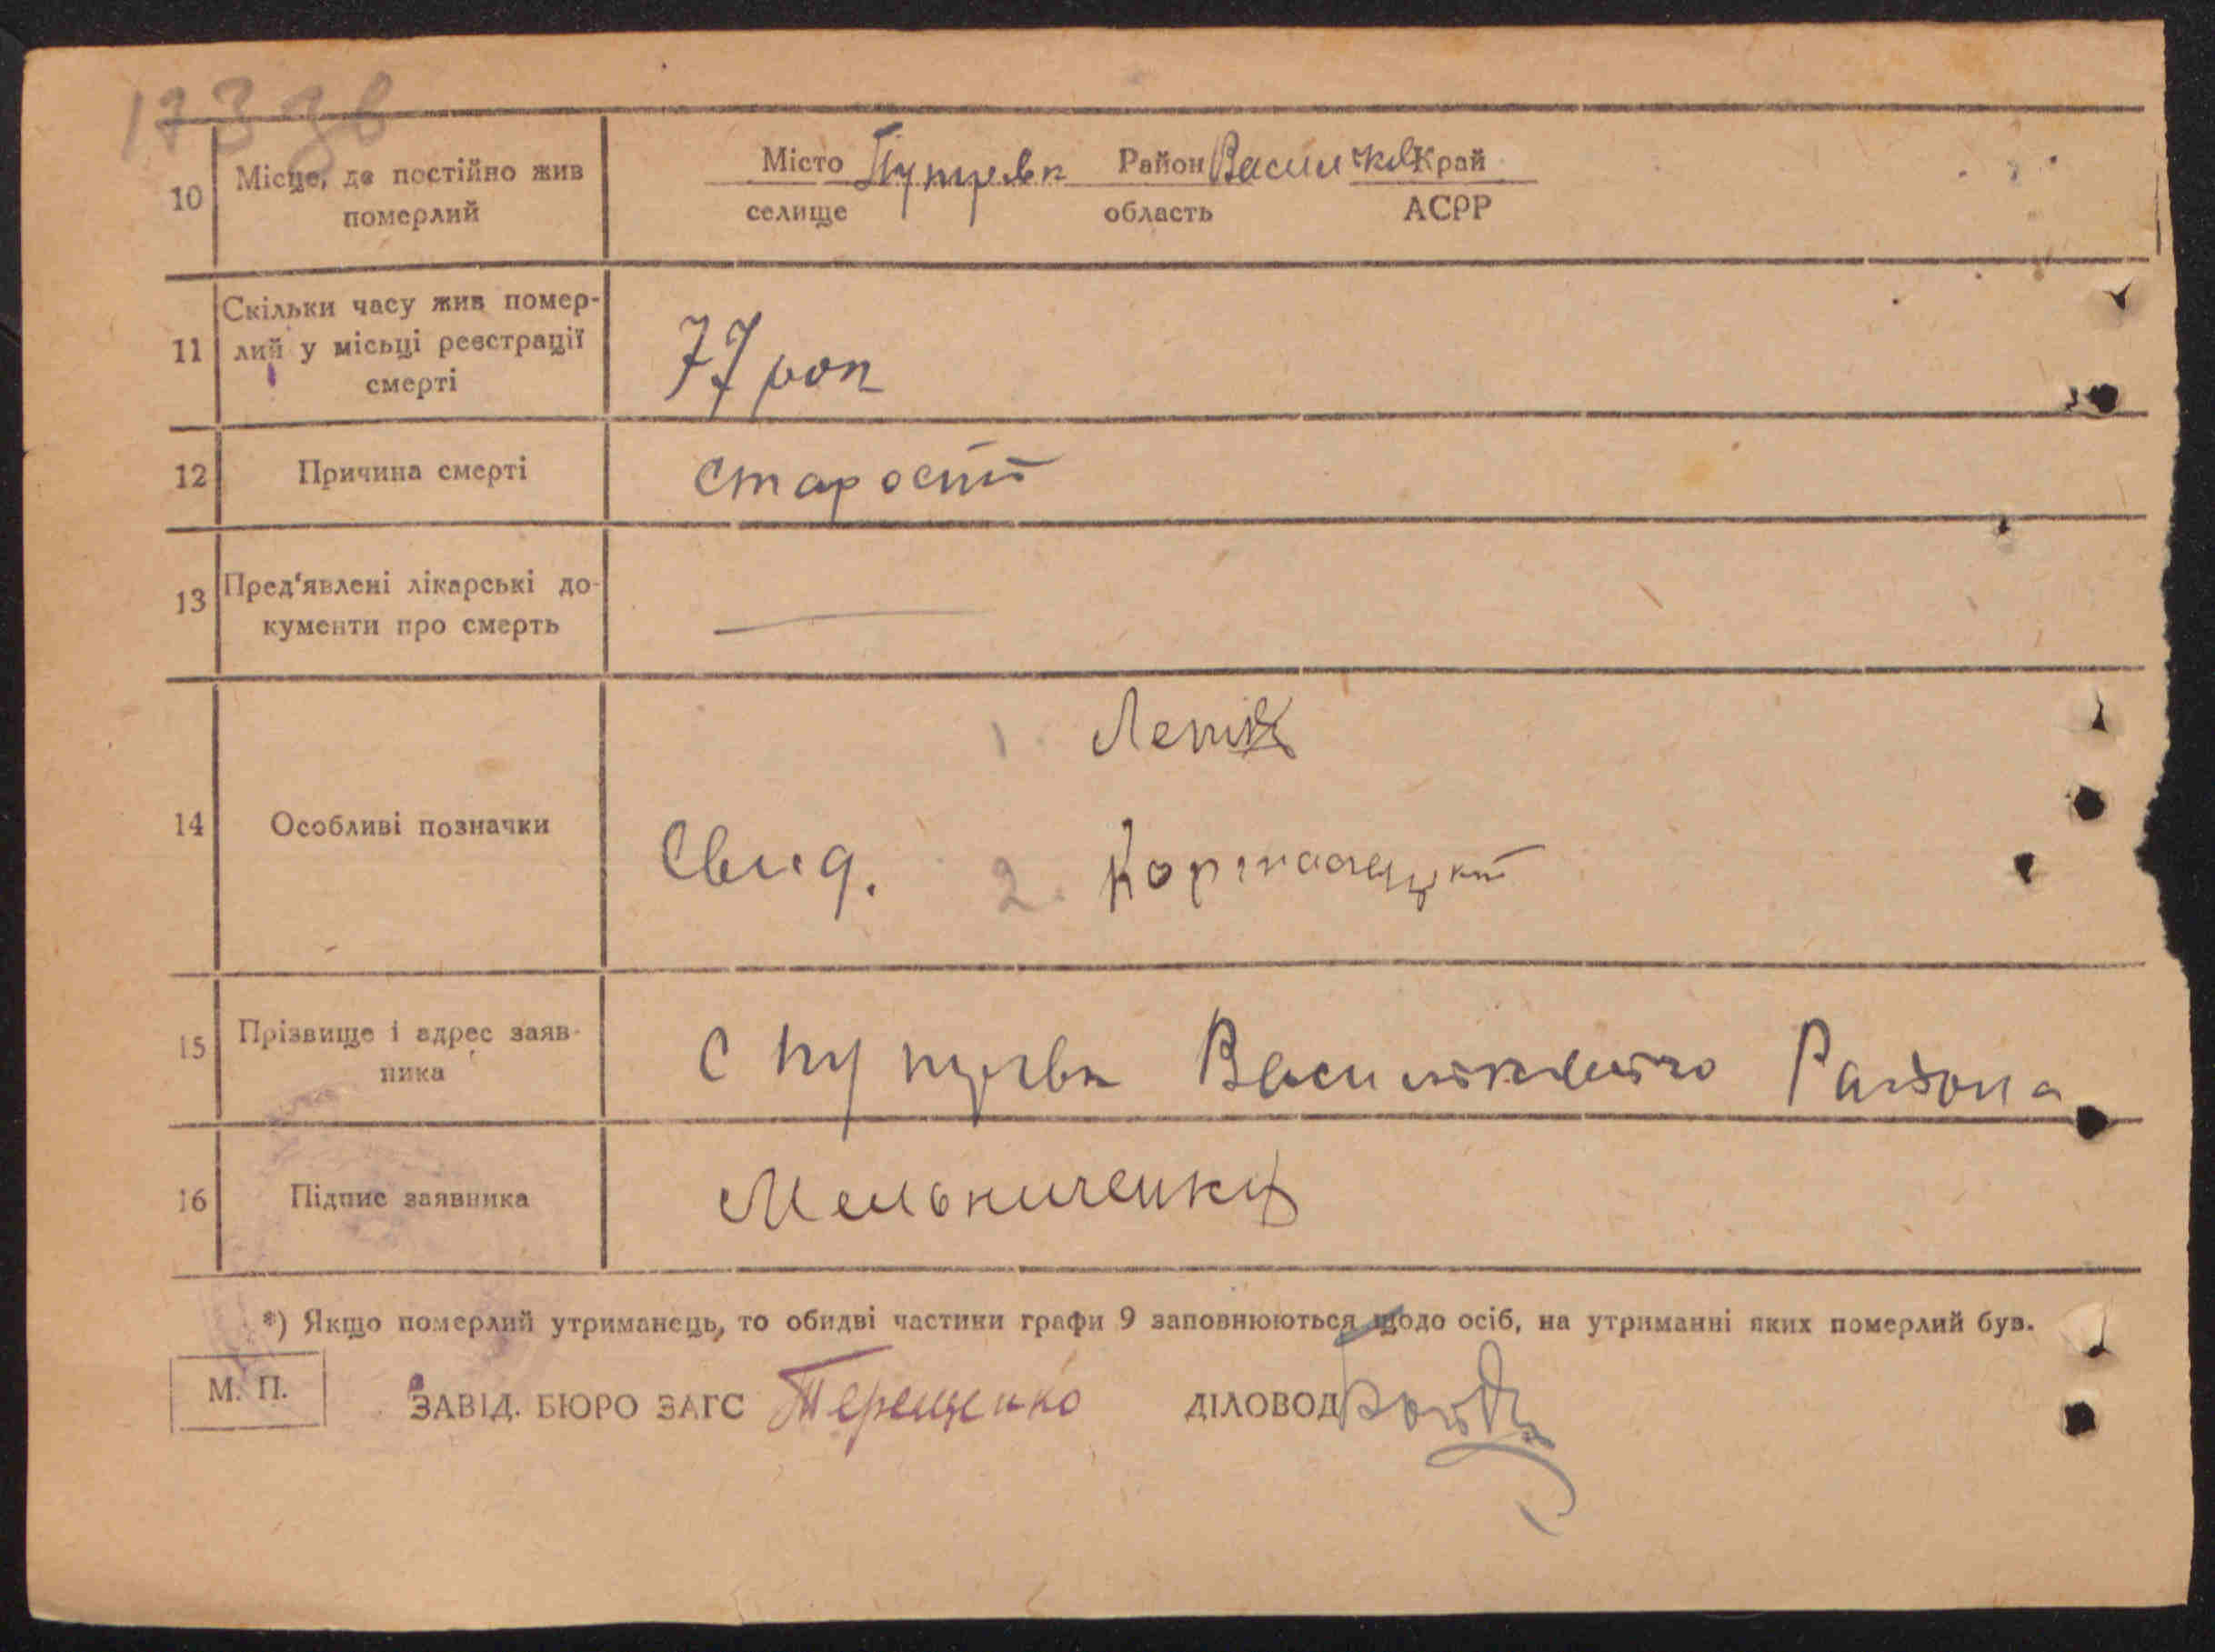 173 зв
10 Місце, де постійно жив померлий
Місто Путрівк Район Васильків Край
селище область АСРР
11 Скільки часу жив помер-
лий у місьці реєстрації
смерті
77 рок
12 Причина смерті старості
13 Пред'явлені лікарські до-
кументи про смерть —
1.
14 Особливі позначки
Свид. 2.
15 Прізвище і адрес заяв-
ника
с Путрівк Васильківского Район а
16 Підпис заявника Мельниченко
*) Якщо померлий утриманець, то обидві частини графи 9 заповнюються щодо осіб, на утриманні яких померлий був.
М. П. ЗАВІД. БЮРО ЗАГС Терещенко ДІЛОВОД